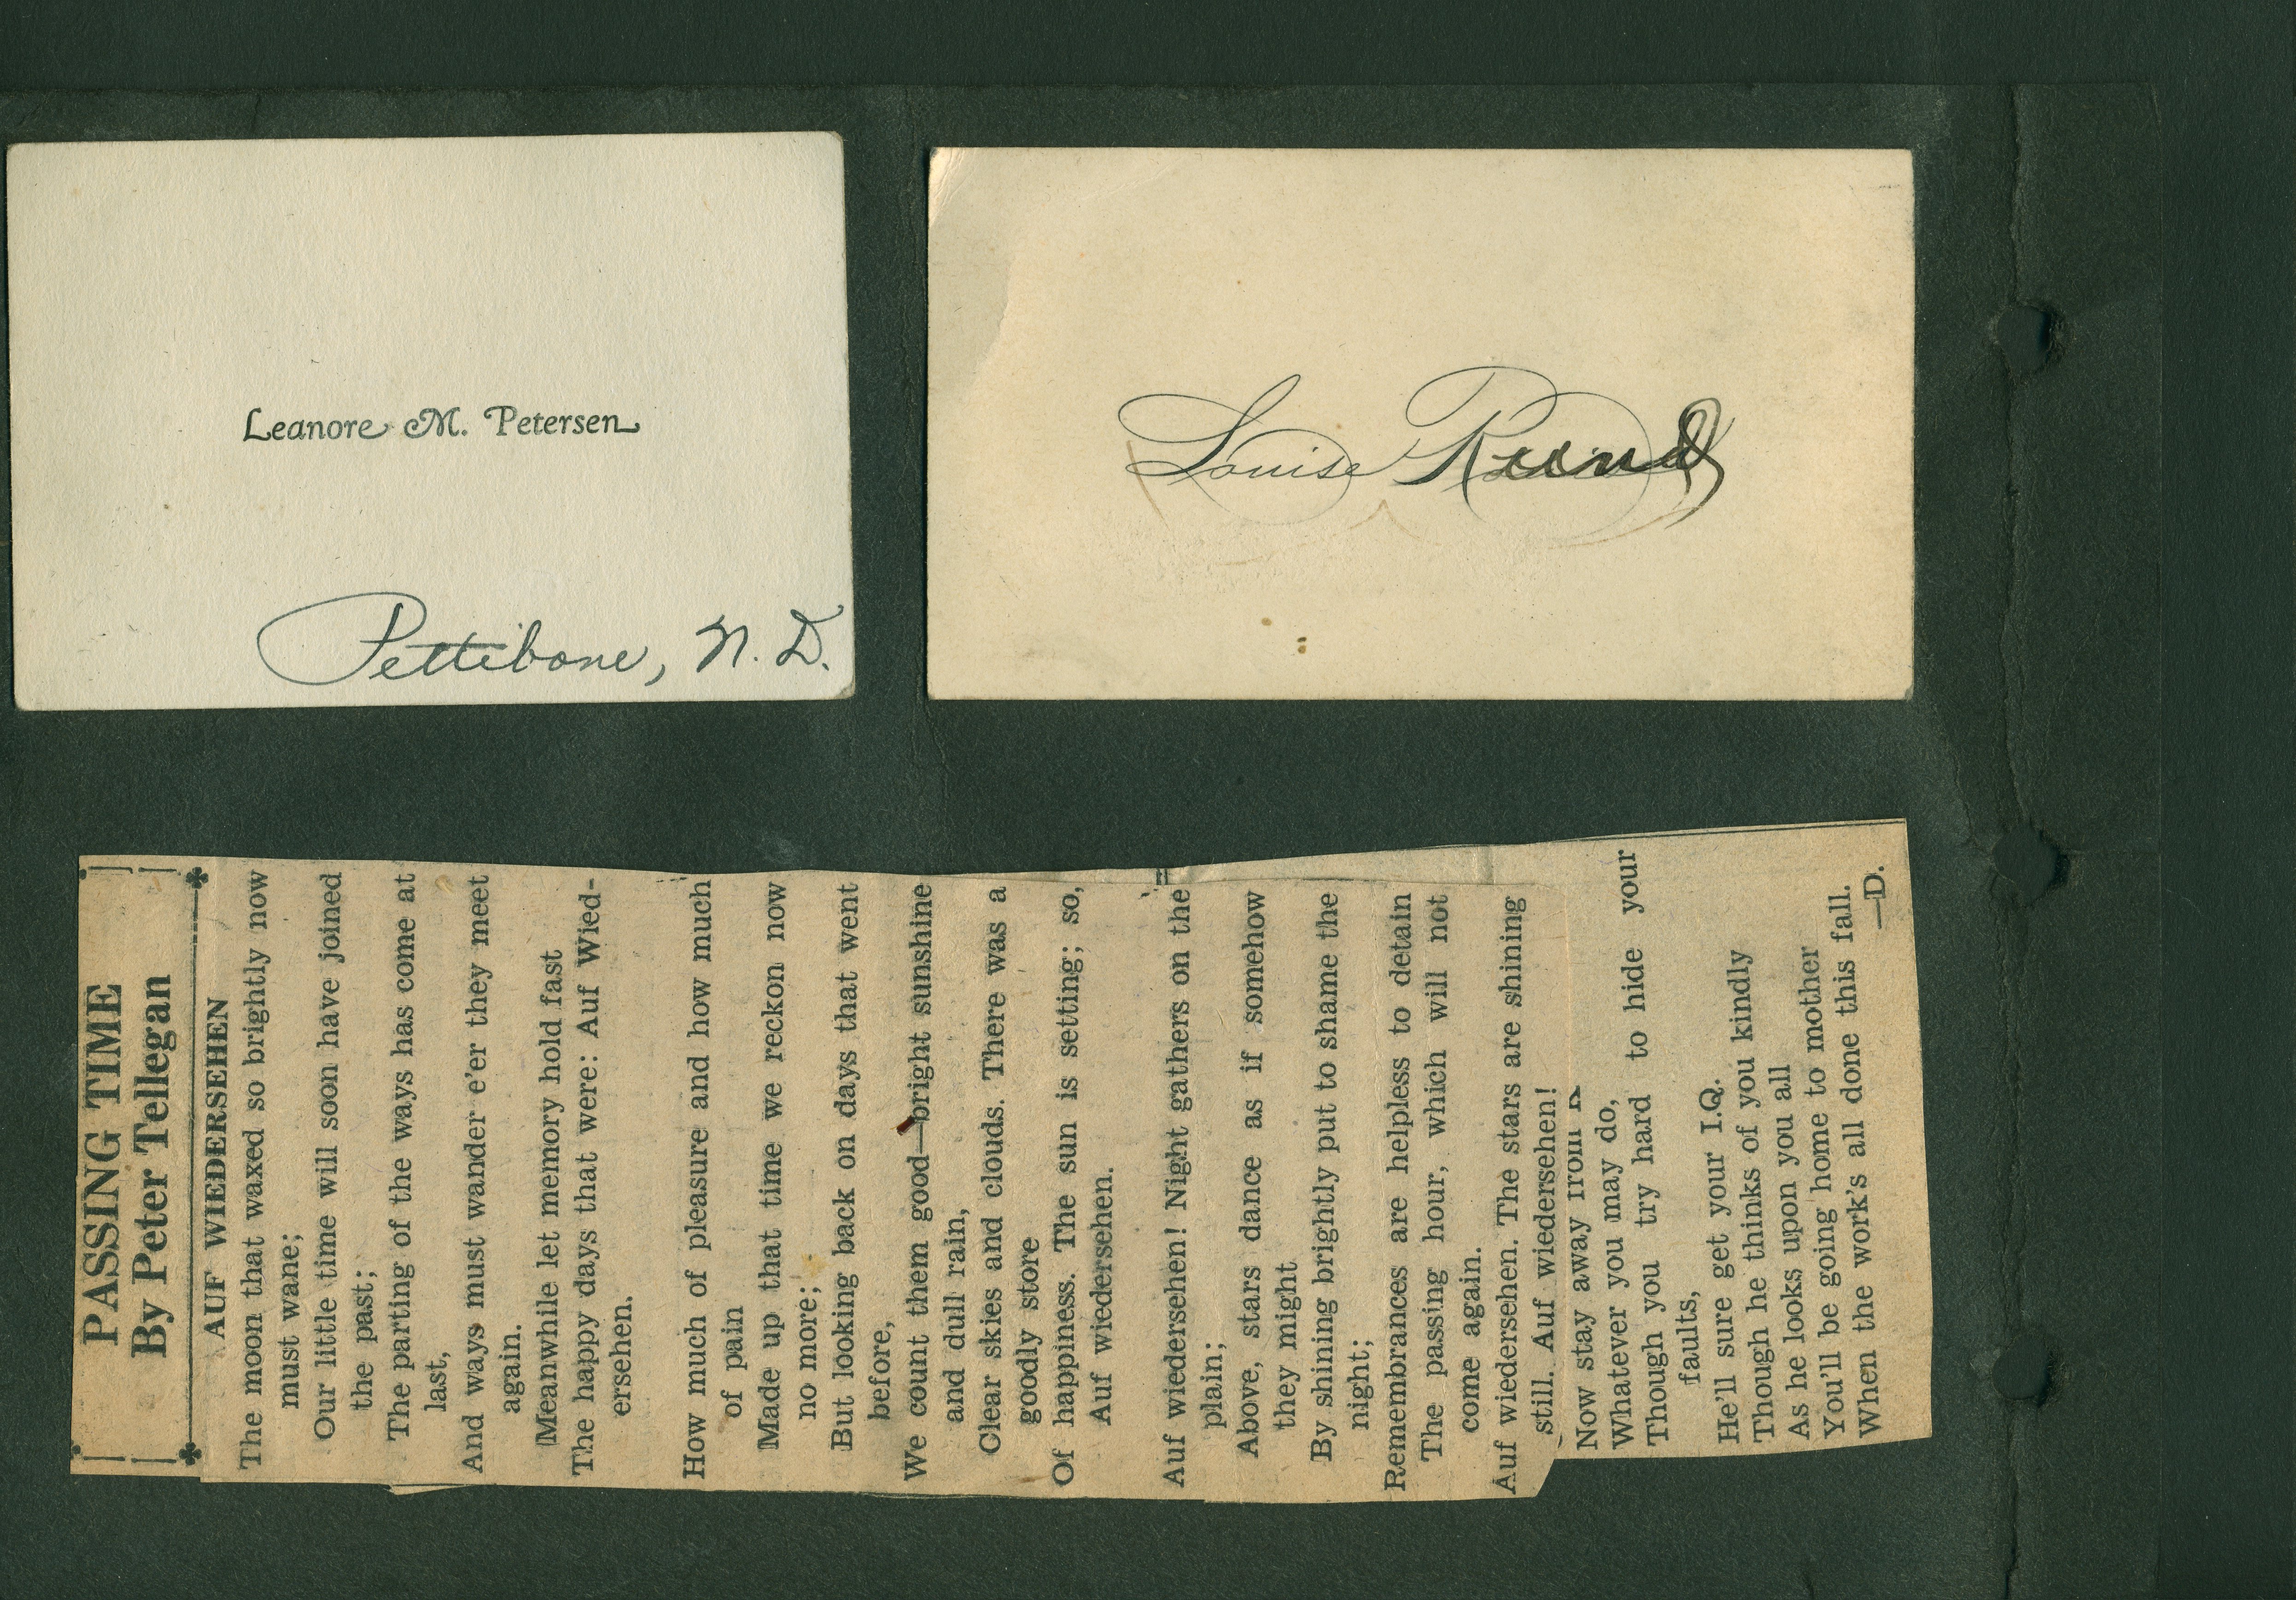 Leanore M. Petersen
Pettibone, N. D.
Louise
PASSING TIME
By Peter Tellegan
AUF WIEDERSEHEN
The moon that waxed so brightly now
must wane;
Our little time will soon have joined
the past;
The parting of the ways has come at
last,
And ways must wander e'er they meet
again.
Meanwhile let memory hold fast
The happy days that were: Auf Wied-
ersehen.
How much of pleasure and how much
of pain
Made up that time we reckon now
no more;
But looking back on days that went
before,
We count them good—bright sunshine
and dull rain,
Clear skies and clouds. There was a
goodly store
Of happiness. The sun is setting; so,
Auf wiedersehen.
Auf wiedersehen! Night gathers on the
plain;
Above, stars dance as if somehow
they might
By shining brightly put to shame the
night;
Remembrances are helpless to detain
The passing hour, which will not
come again.
Auf wiedersehen. The stars are shining
still. Auf wiedersehen!
Now stay away from
Whatever you may do,
Though you try hard to hide your
faults,
He'll sure get your I.Q.
Though he thinks of you kindly
As he looks upon you all
You'll be going home to mother
When the work's all done this fall.
—D.